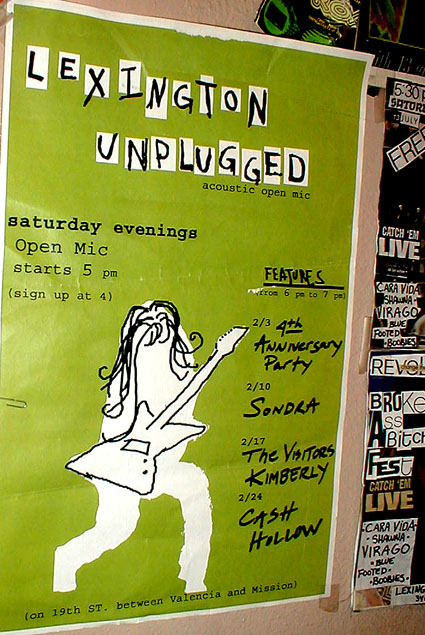 LEXINGTON
UNPLUGGED
acoustic open mic
saturday evenings
Open Mic
starts 5 pm
(sign up at 4)
FEATURES
(from 6 pm to 7 pm)
2/3 4th
Anniversary
Party
2/10
SONDRA
2/17
The Visitors
Kimberly
2/24
CASH
Hollow
(on 19th ST. between Valencia and Mission)
5:30
SATUR
JULY
FREE
CATCH 'EM
LIVE
CARA VIDA
SHAWNA
VIRAGO
BLUE
FOOTED
BOOBIES
REVOL
BROKE
ASS
BITCH
FEST
CATCH 'EM
LIVE
CARA VIDA
- SHAWNA -
VIRAGO
- BLUE
FOOTED -
- BOOBIES -
LEXING